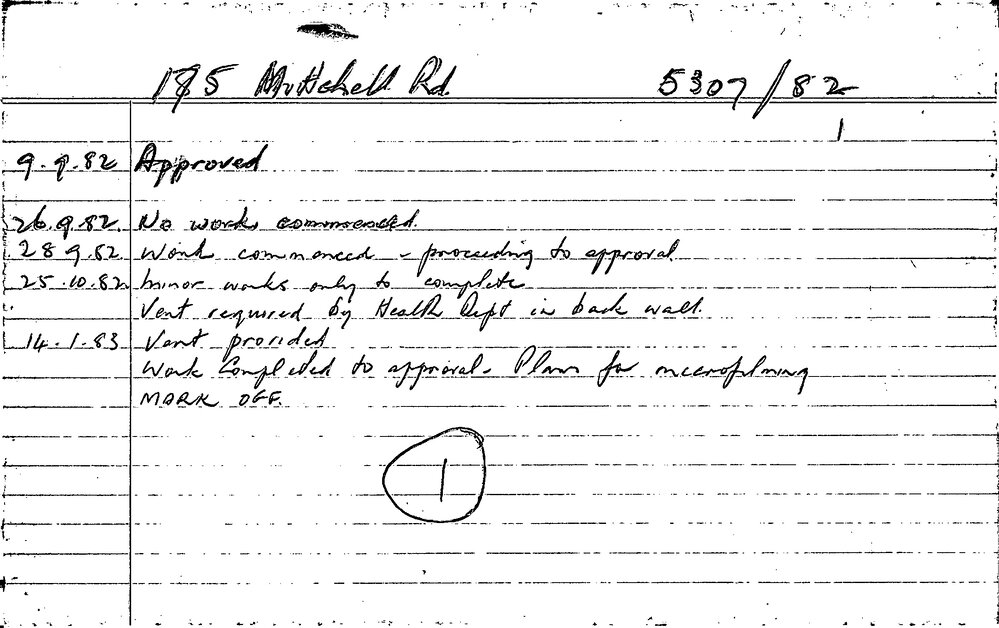 195 Mitchell Rd. 5307/82
1
9.9.82 Approved
26.9.82. No works commenced.
28 9.82. Work commenced - proceeding to approval
25.10.82 Minor works only to complete
Vent required by Health Dept in back wall.
14.1.83 Vent provided
Work Completed to approval. Plans for microfilming
MARK OFF.
1